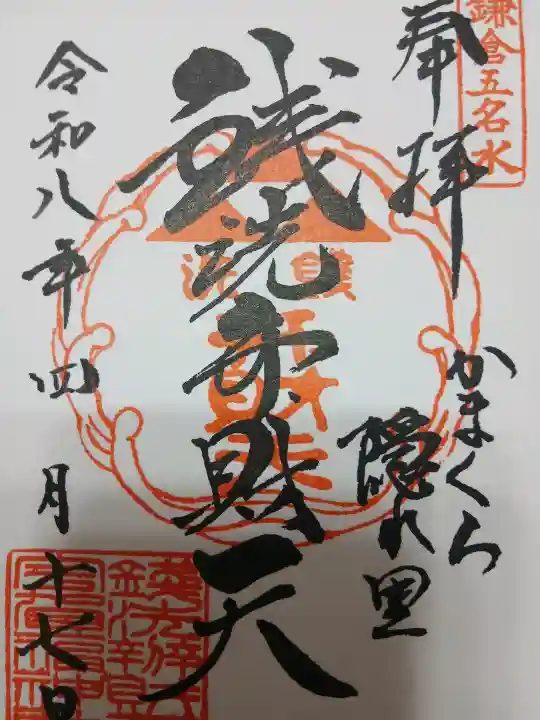 鎌倉五名水
奉拝
かまくら
隠れ里
銭洗弁財天
令和八年四月十七日